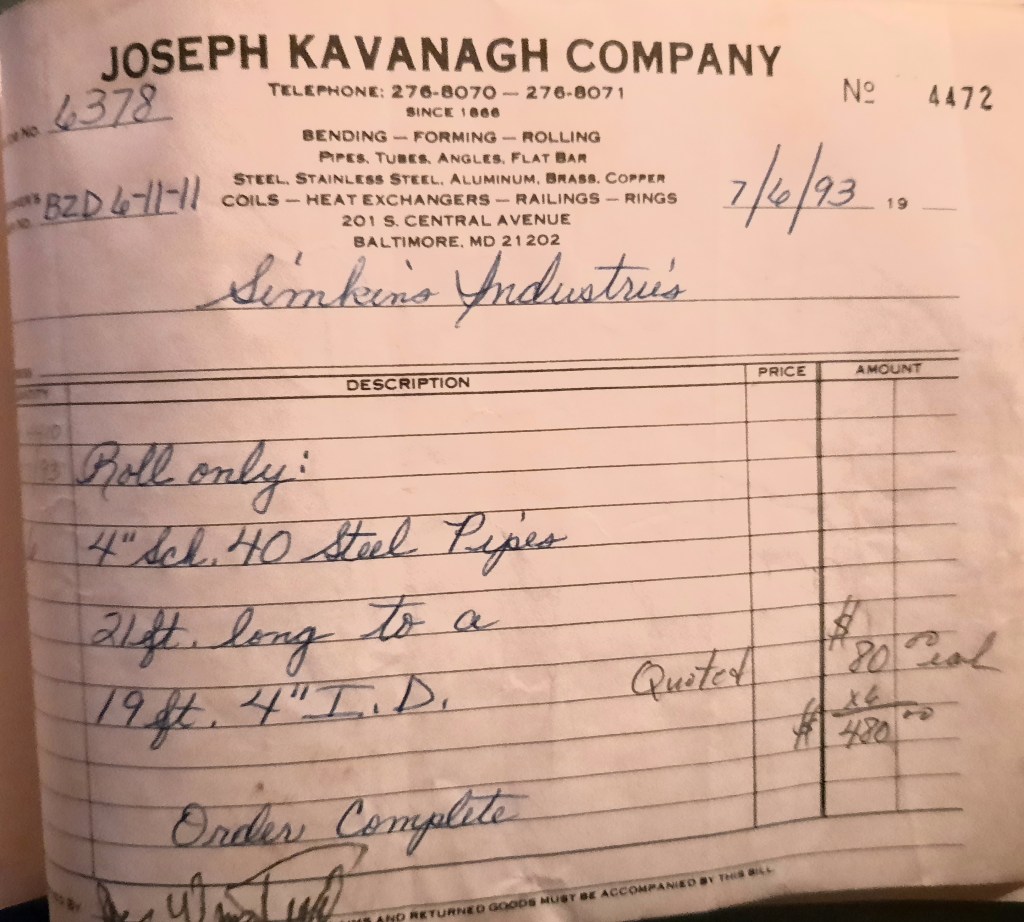 JOSEPH KAVANAGH COMPANY
TELEPHONE: 276-8070 — 276-8071
Nº 4472
SINCE 1866
NO. 6378
BENDING — FORMING — ROLLING
PIPES, TUBES, ANGLES, FLAT BAR
STEEL, STAINLESS STEEL, ALUMINUM, BRASS, COPPER
BZD 6-11-11
COILS — HEAT EXCHANGERS — RAILINGS — RINGS
7/6/93 19
201 S. CENTRAL AVENUE
BALTIMORE, MD 21202
Simkins Industries
DESCRIPTION PRICE AMOUNT
Roll only:
4" Sch. 40 Steel Pipes
21 ft. long to a
$ 80 00 each
19 ft. 4" I.D. Quoted
x6
$ 480 00
Order Complete
BY
AND RETURNED GOODS MUST BE ACCOMPANIED BY THIS BILL